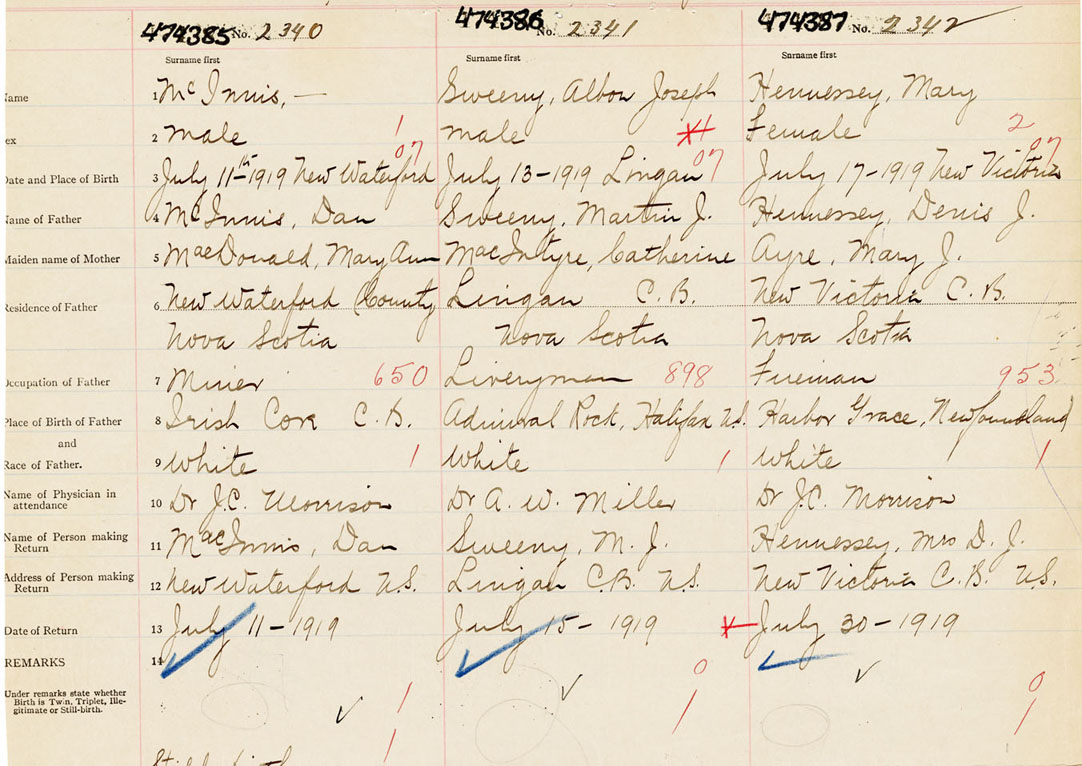 474385 No. 2340 474386 No. 2341 474387 No. 2342
Surname first Surname first Surname first
Name 1 McInnis, — Sweeny, Albon Joseph Hennessey, Mary
Sex 2 male 1 male 1 Female 2
07 07 07
Date and Place of Birth 3 July 11th-1919 New Waterford July 13-1919 Lingan July 17-1919 New Victoria
Name of Father 4 McInnis, Dan Sweeny, Martin J. Hennessey, Denis J.
Maiden name of Mother 5 MacDonald, Mary Ann MacIntyre, Catherine Ayre, Mary J.
Residence of Father 6 New Waterford County Lingan C.B. New Victoria C.B.
Nova Scotia Nova Scotia Nova Scotia
Occupation of Father 7 Miner 650 Liveryman 898 Fireman 953
Place of Birth of Father 8 Irish Cove C.B. Admiral Rock, Halifax N.S. Harbor Grace, Newfoundland
and
Race of Father. 9 White 1 White 1 White 1
Name of Physician in attendance 10 Dr J.C. Morrison Dr A. W. Miller Dr J.C. Morrison
Name of Person making Return 11 MacInnis, Dan Sweeny, M. J. Hennessey, Mrs D. J.
Address of Person making Return 12 New Waterford N.S. Lingan C.B. N.S. New Victoria C.B. N.S.
Date of Return 13 July 11-1919 July 15-1919 July 30-1919
REMARKS 14
0 0
Under remarks state whether Birth is Twin, Triplet, Ille-
gitimate or Still-birth. 1 1 1
1
Still birth